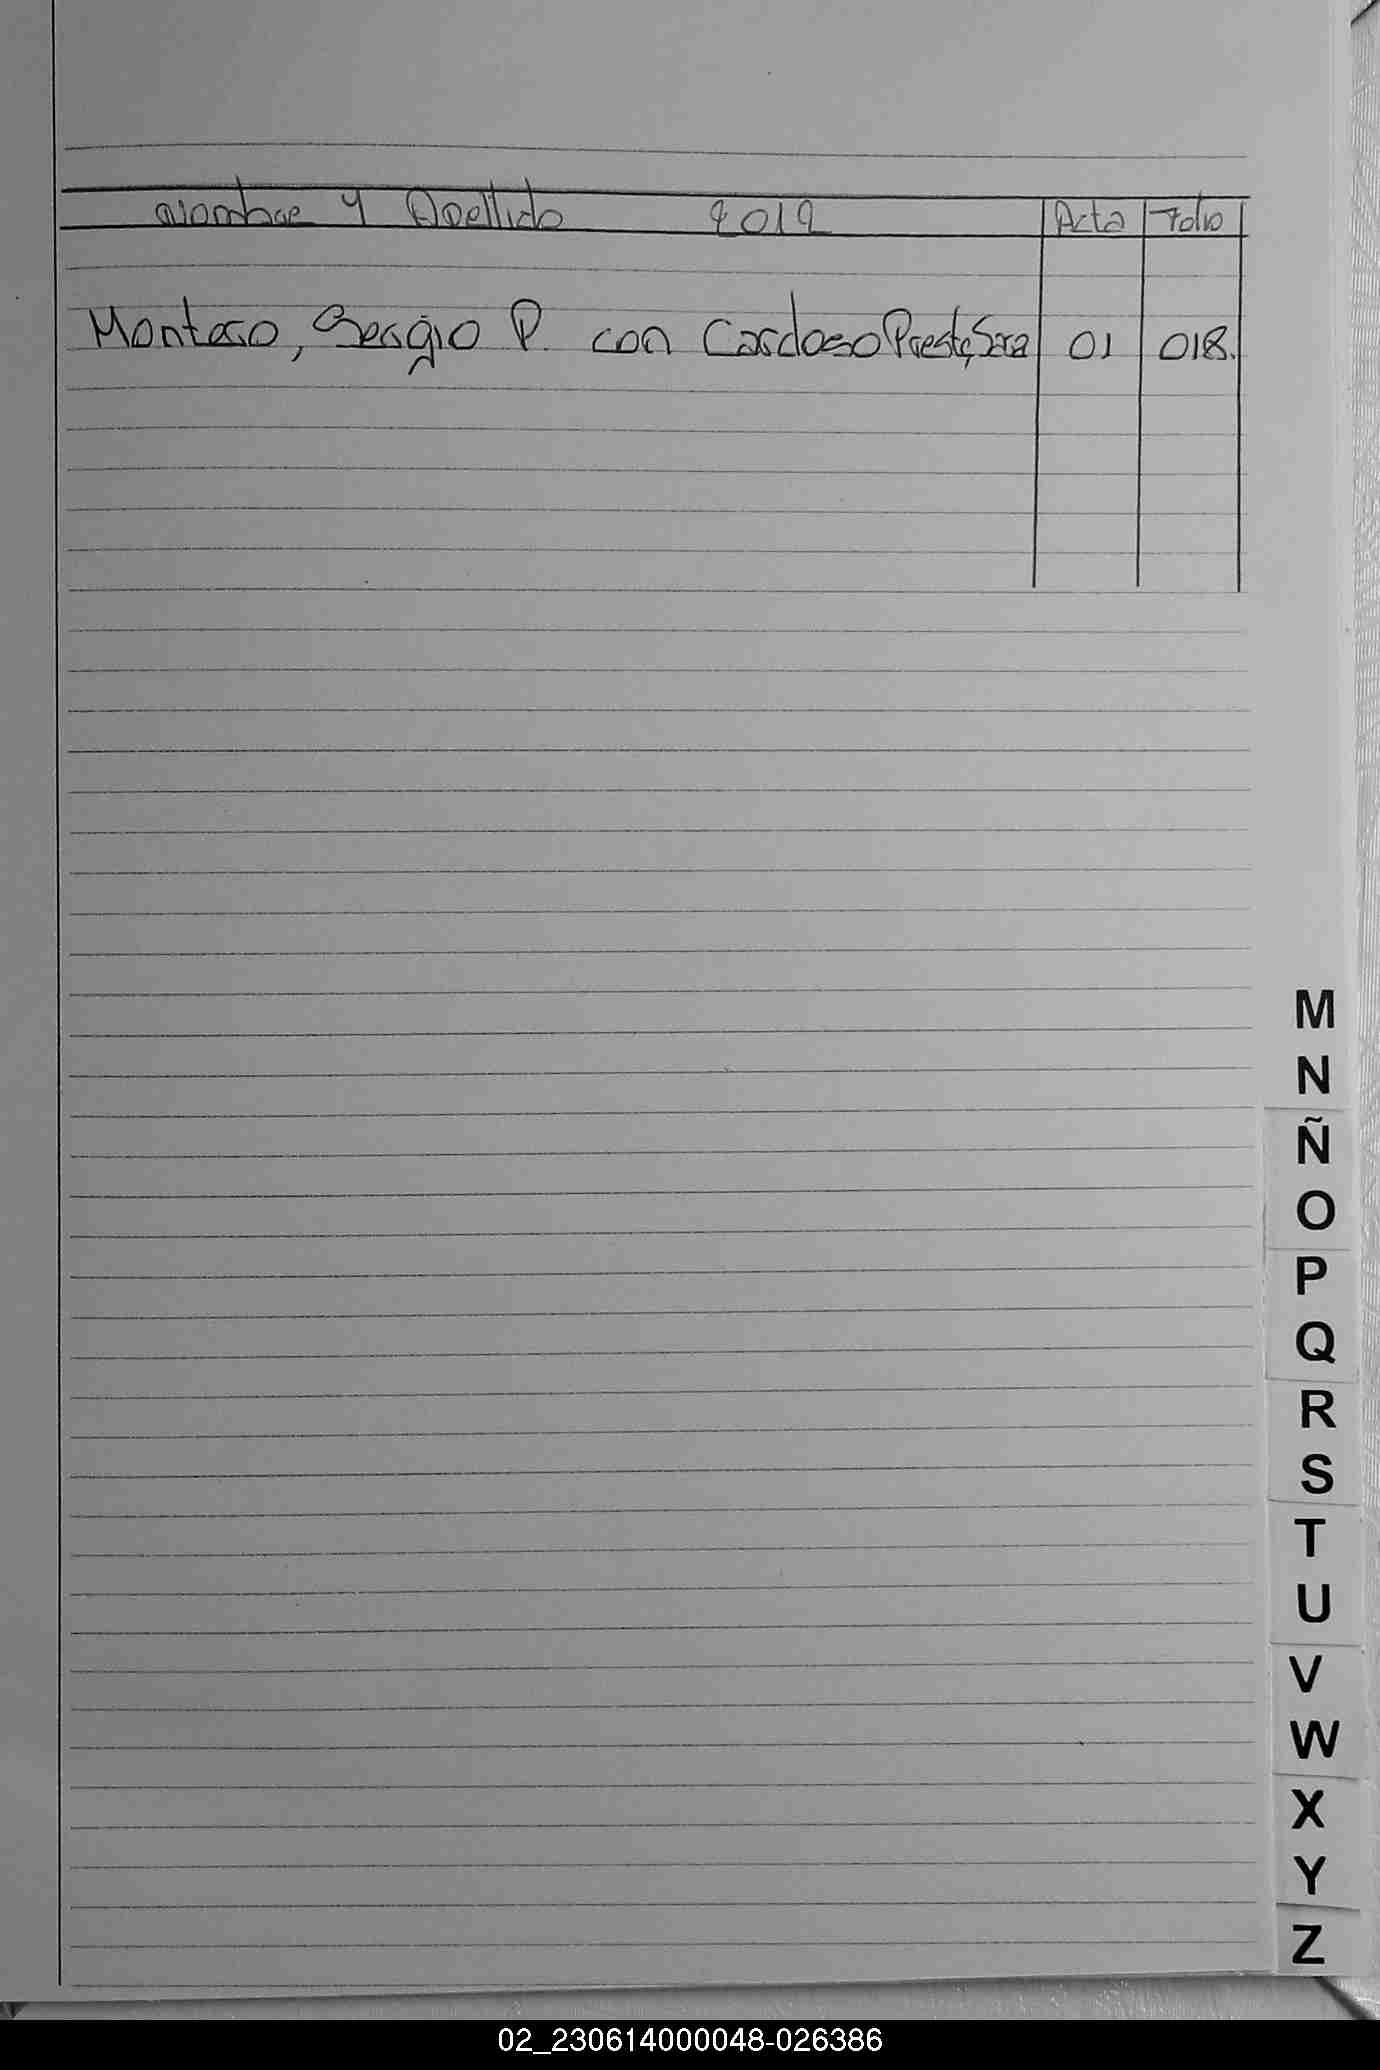 Nombre y Apellido 2012 Acta Folio
Montero, Sergio P. con Cardoso Preste, Sara 01 018.
M
N
Ñ
O
P
Q
R
S
T
U
V
W
X
Y
Z
02_230614000048-026386